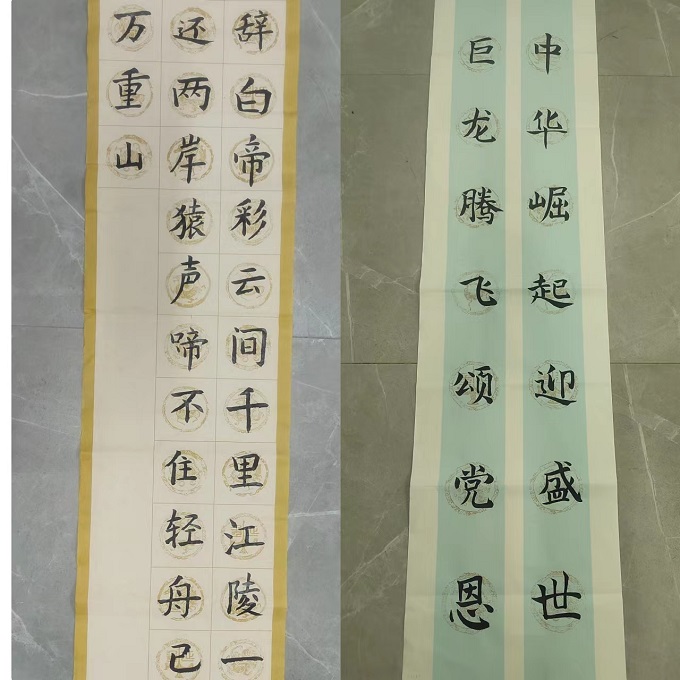 辞白帝彩云间千里江陵一
还两岸猿声啼不住轻舟已
万重山
中华崛起迎盛世
巨龙腾飞颂党恩